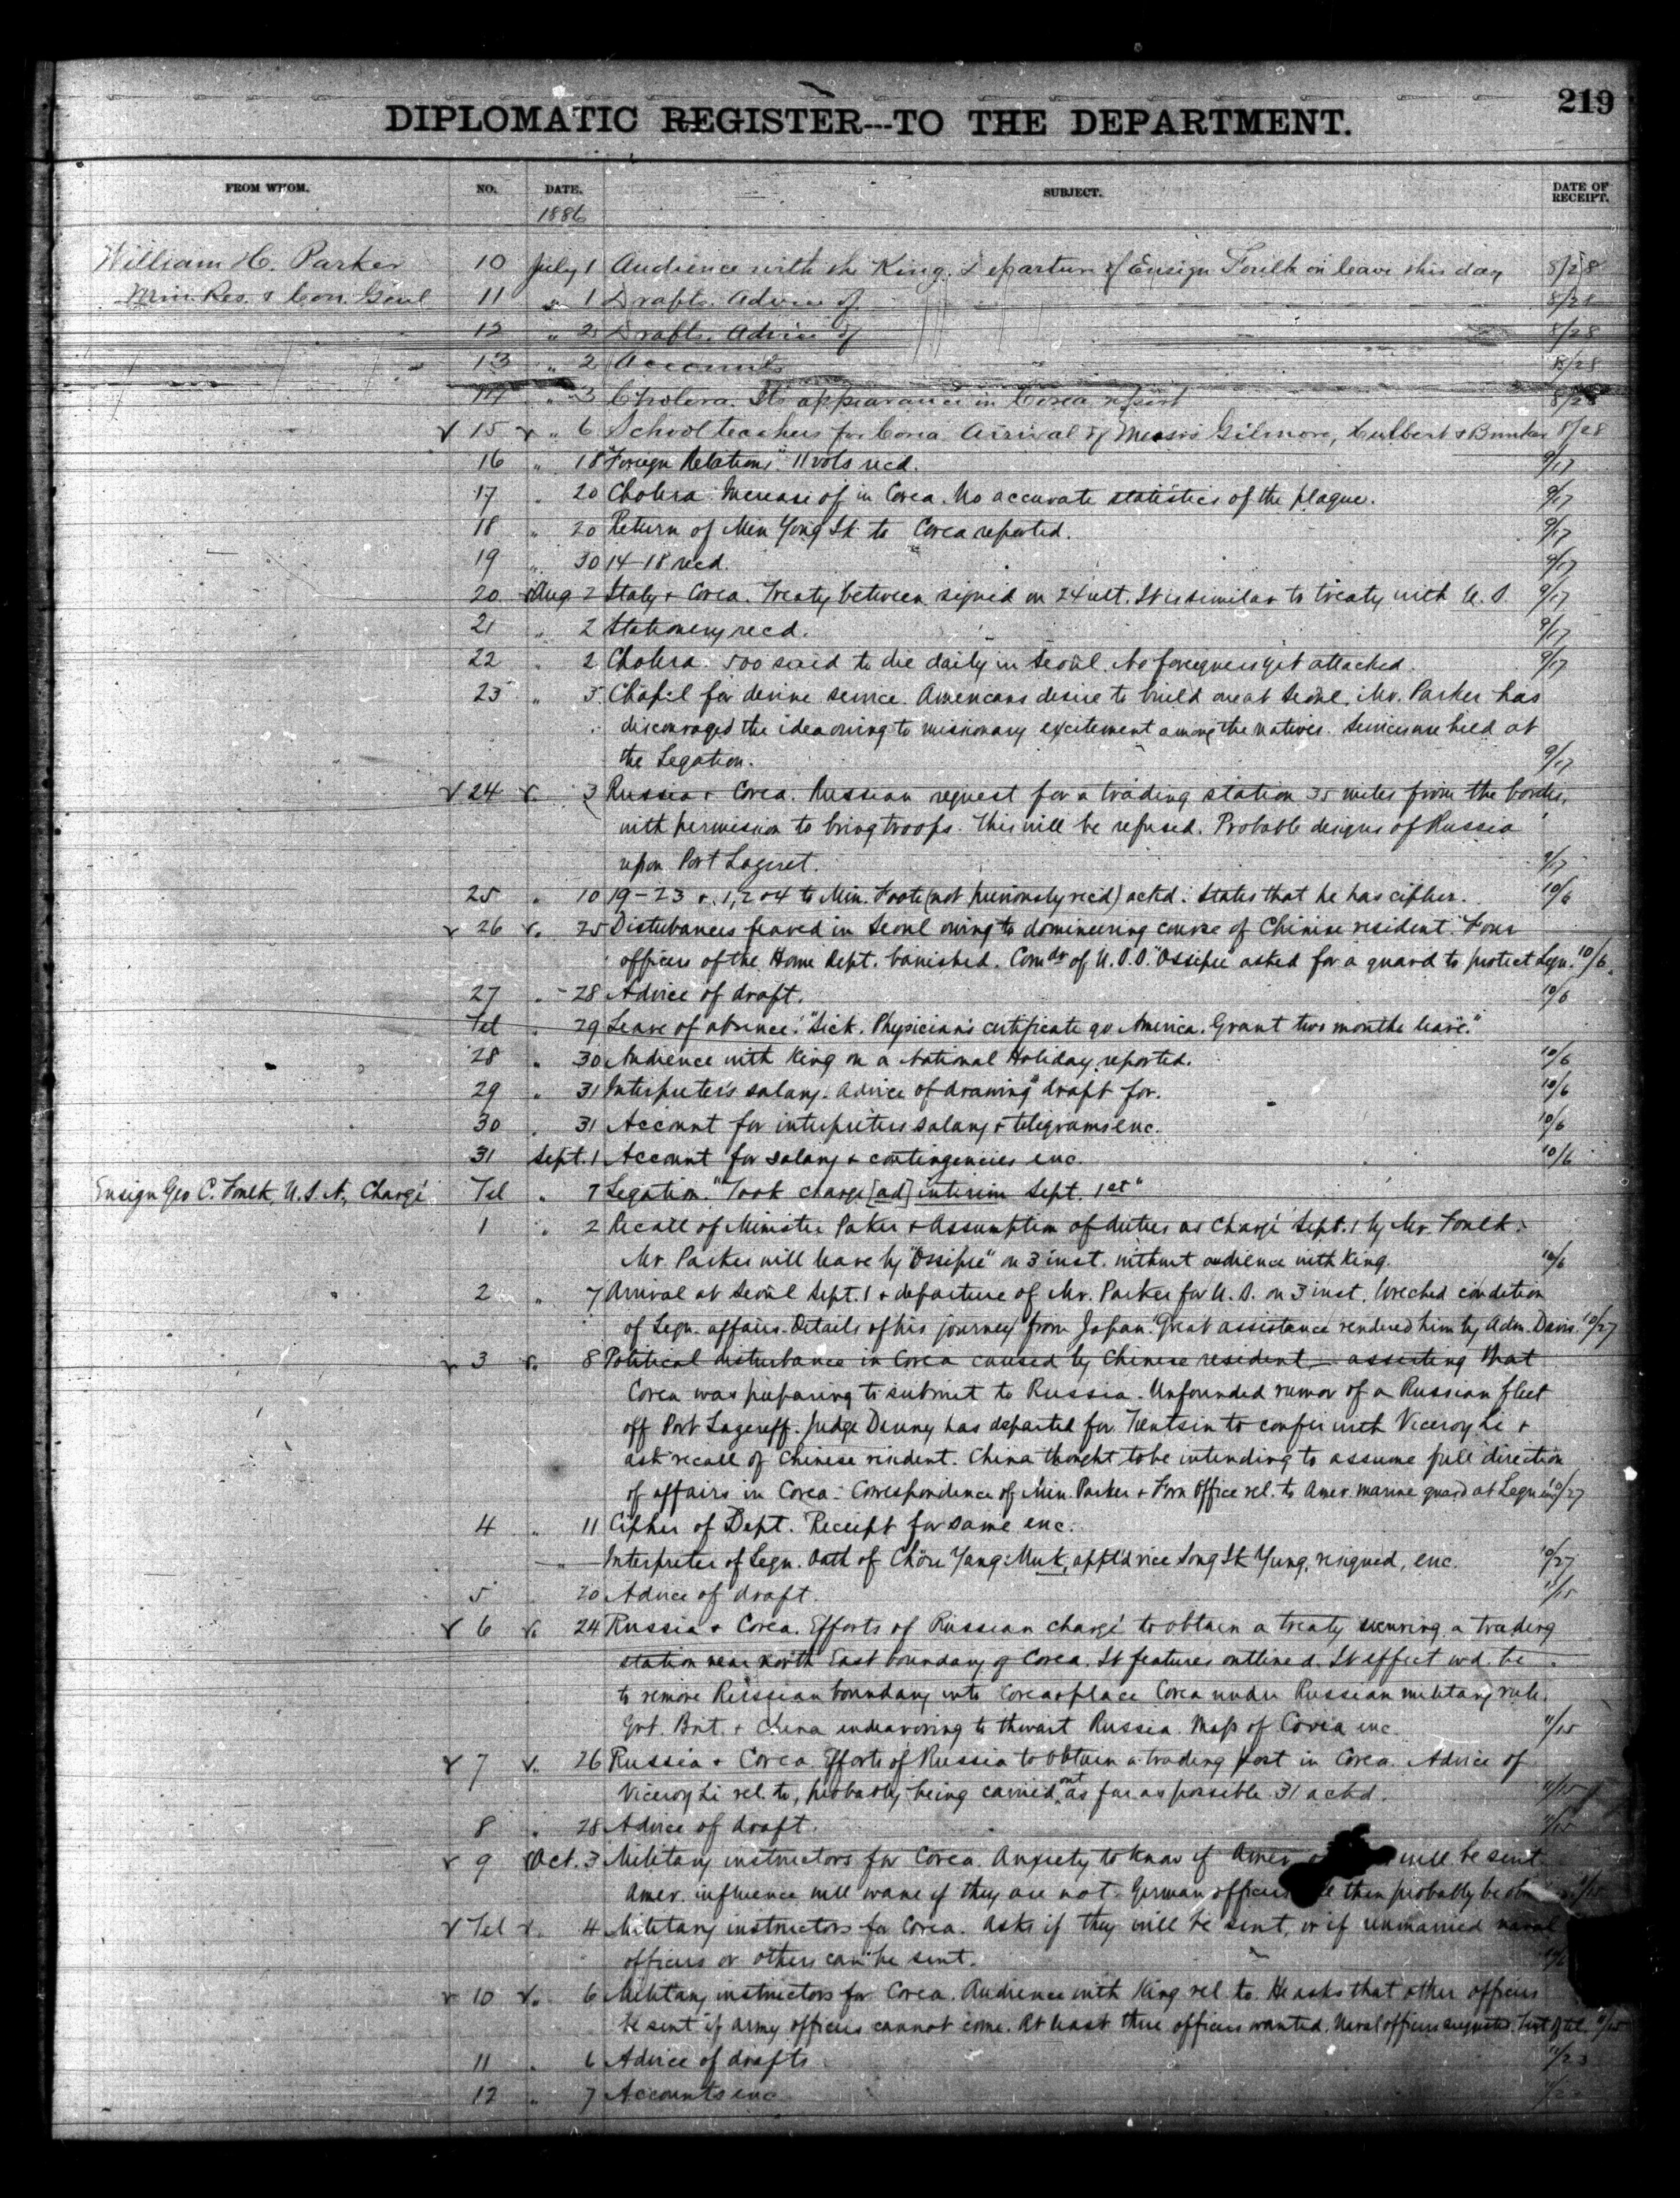 219
DIPLOMATIC REGISTER---TO THE DEPARTMENT.
FROM WHOM. NO. DATE. SUBJECT. DATE OF RECEIPT.
1886
William H. Parker 10 July 1 Audience with the King. Departure of Ensign Foulk on leave this day 8/28
Min. Res. & Con. Genl 11 " 1 Drafts. Advice of 8/28
12 " 2 Drafts. Advice of 8/28
13 " 2 Accounts 8/28
14 " 3 Cholera. Its appearance in Corea report 8/28
√ 15 √ " 6 School teachers for Corea Arrival of Messrs Gilmore, Hulbert & Bunker 8/28
16 " 18 "Foreign Relations" 11 vols recd. 9/17
17 " 20 Cholera Increase of in Corea. No accurate statistics of the plague. 9/17
18 " 20 Return of Min Yong Ik to Corea reported. 9/17
19 " 30 14-18 recd. 9/17
20 Aug 2 Italy & Corea. Treaty between signed on 24 ult. It is similar to treaty with U.S. 9/17
21 " 2 Stationery recd. 9/17
22 " 2 Cholera. 500 said to die daily in Seoul. No foreigners yet attacked. 9/17
23 " 3 Chapel for devine service. Americans desire to build one at Seoul. Mr. Parker has
discouraged the idea owing to missionary excitement among the natives. Services are held at
the Legation. 9/17
√ 24 √ " 3 Russia & Corea. Russian request for a trading station 35 miles from the border,
with permission to bring troops. This will be refused. Probable designs of Russia
upon Port Lazeret. 9/17
25 " 10 19-23 & 1, 2 & 4 to Min. Foote (not previously rec'd) ackd. States that he has cipher. 10/6
√ 26 √ " 25 Disturbances feared in Seoul owing to domineering course of Chinese resident. Four
officers of the Home Dept. banished. Comdr of U.S.S. "Ossipee" asked for a guard to protect Legn. 10/6
27 " 28 Advice of draft. 10/6
Tel " 29 Leave of absence. "Sick. Physician's certificate go America. Grant two months leave."
28 " 30 Audience with King on a National Holiday reported. 10/6
29 " 31 Interpreter's salary. Advice of drawing draft for. 10/6
30 " 31 Account for interpreters salary & telegrams enc. 10/6
31 Sept. 1 Account for salary & contingencies enc. 10/6
Ensign Geo C. Foulk, U.S.N., Chargé Tel " 7 Legation. "Took charge [ad] interim Sept. 1st"
1 " 2 Recall of Minister Parker & Assumption of duties as Chargé Sept. 1 by Mr. Foulk.
Mr. Parker will leave by "Ossipee" on 3 inst. without audience with King. 10/6
2 " 7 Arrival at Seoul Sept. 1 & departure of Mr. Parker for U.S. on 3 inst. Wreched condition
of Legn. affairs. Details of his journey from Japan. Great assistance rendered him by Adm. Davis. 10/27
√ 3 √ " 8 Political disturbance in Corea caused by Chinese resident — asserting that
Corea was preparing to submit to Russia. Unfounded rumor of a Russian fleet
off Port Lazereff. Judge Denny has departed for Tientsin to confer with Viceroy Li &
ask recall of Chinese resident. China thought to be intending to assume full direction
of affairs in Corea. Correspondence of Min. Parker & Forn Office rel. to Amer. marine guard at Legn enc 10/27
4 " 11 Cipher of Dept. Receipt for same enc.
" Interpreter of Legn. Oath of Chöu Yang Muk, appt'd vice Song Ik Yung, resigned, enc. 10/27
5 20 Advice of draft. 11/15
√ 6 √ " 24 Russia & Corea. Efforts of Russian chargé to obtain a treaty securing a trading
station near North East boundary of Corea. It features outlined. It effect wd. be
to remove Russian boundary into Corea & place Corea under Russian military rule.
Grt. Brit. & China endeavoring to thwart Russia. Map of Corea enc. 11/15
√ 7 √ " 26 Russia & Corea. Efforts of Russia to obtain a trading post in Corea. Advice of
Viceroy Li rel. to, probably being carried out as far as possible. 31 ackd. 11/15
8 " 28 Advice of draft. 11/15
√ 9 √ Oct. 3 Military instructors for Corea. Anxiety to know if Amer. will be sent.
Amer. influence will wane if they are not. German officers then probably be 11/15
√ Tel √ " 4 Military instructors for Corea. Asks if they will be sent, or if unmarried naval
officers or others can be sent.
√ 10 √ " 6 Military instructors for Corea. Audience with King rel. to. He asks that other officers
be sent if army officers cannot come. At least three officers wanted. Naval officers suggested. Text of tel. 11/15
11 " 6 Advice of drafts 11/23
12 " 7 Accounts enc